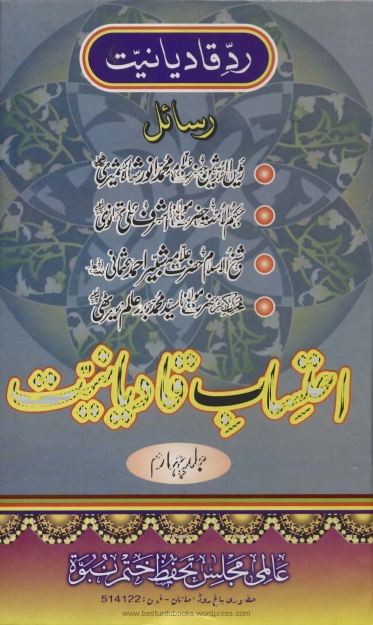 ردِّ قادیانیت
رسائل
حضرت مولانا محمد انور شاہ کشمیری
حکیم الامت حضرت مولانا اشرف علی تھانوی
شیخ الاسلام حضرت علامہ شبیر احمد عثمانی
حضرت مولانا سید محمد بدر عالم میرٹھی
احتسابِ قادیانیت
جلد چہارم
عالمی مجلس تحفظ ختم نبوۃ
حضوری باغ روڈ، ملتان - فون : 514122
www.besturdubooks.wordpress.com